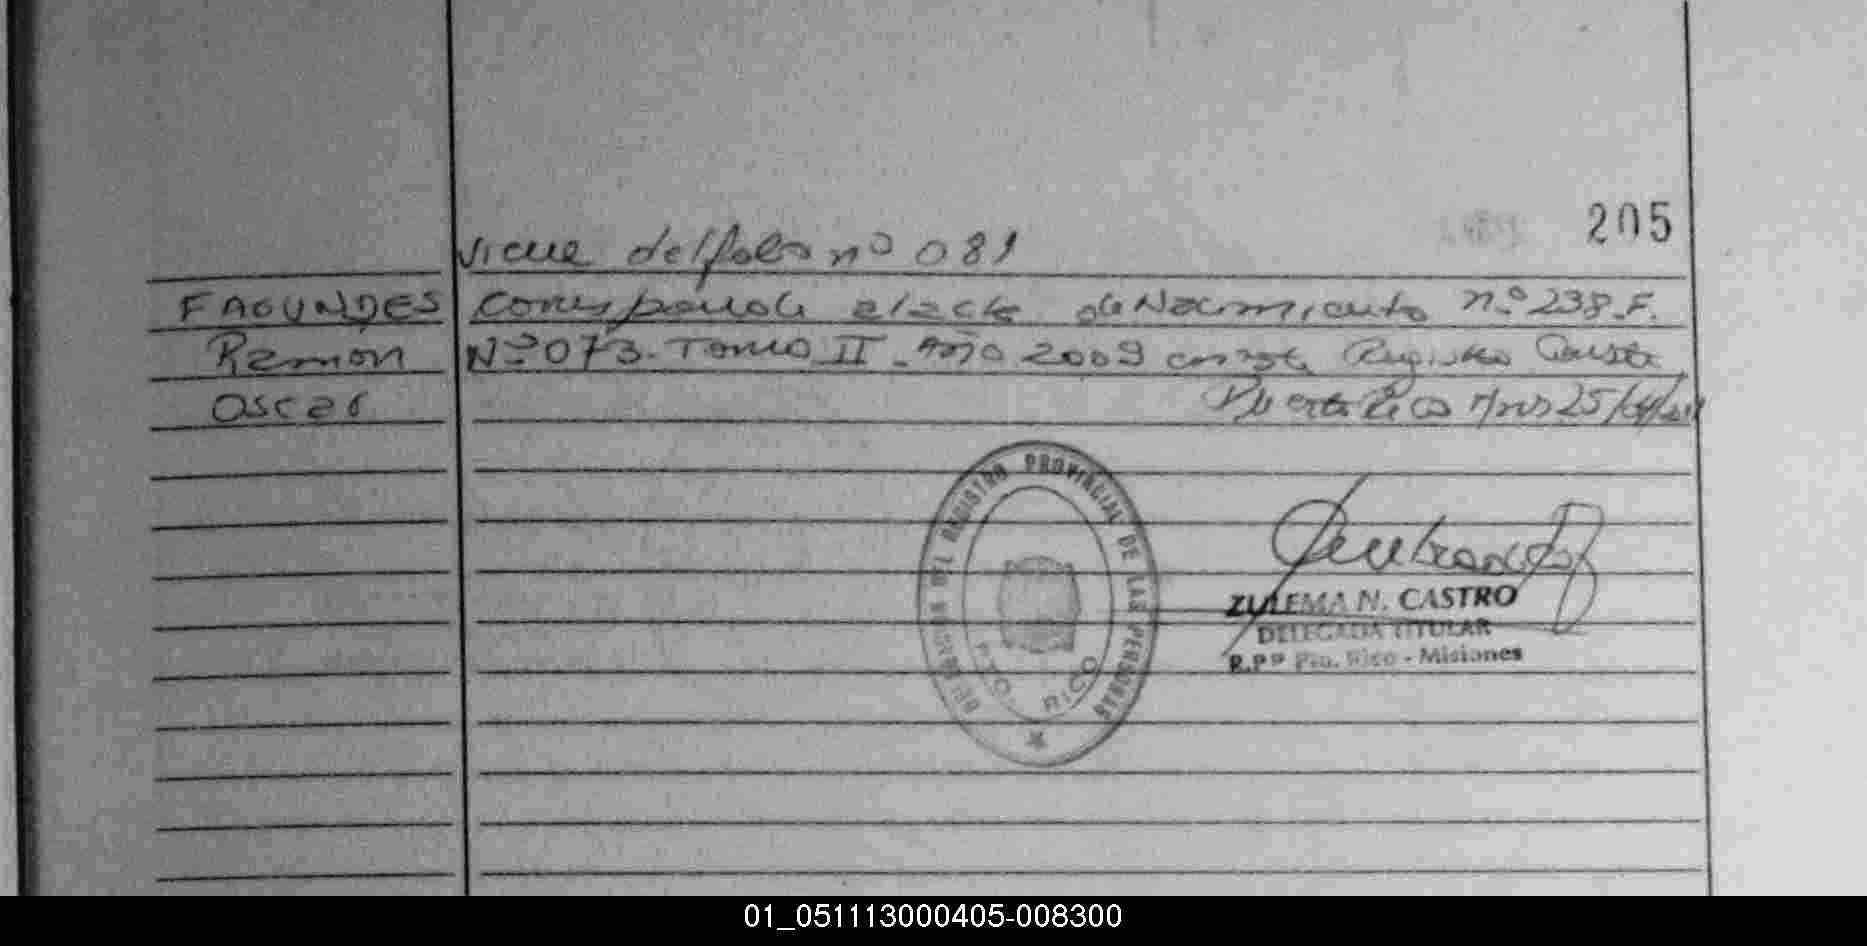 205
viene del folio nº 081
FAGUNDES Corresponde al acta de Nacimiento nº 238. F.
Ramón Nº 073. Tomo II. Año 2009 Registro
Oscar Puerto Rico Mnes 25/
DEL REGISTRO PROVINCIAL DE LAS PERSONAS
PTO. RICO
ZULEMA N. CASTRO
DELEGADA TITULAR
R.Pº Pto. Rico - Misiones
01_051113000405-008300